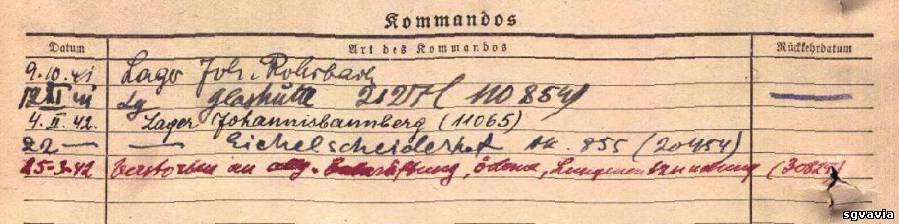 Kommandos
Datum Art des Kommandos Rückkehrdatum
9.10.41 Lager Joh. Rohrbach
Lg Glashütte (110854)
4.II.42. Lager Johannisbannberg (11065)
22 — — Eichelscheiderhof 855 (20454)
25-3-42 Verstorben an allg. Entkräftung, Ödeme, Lungenentzündung
sgvavia